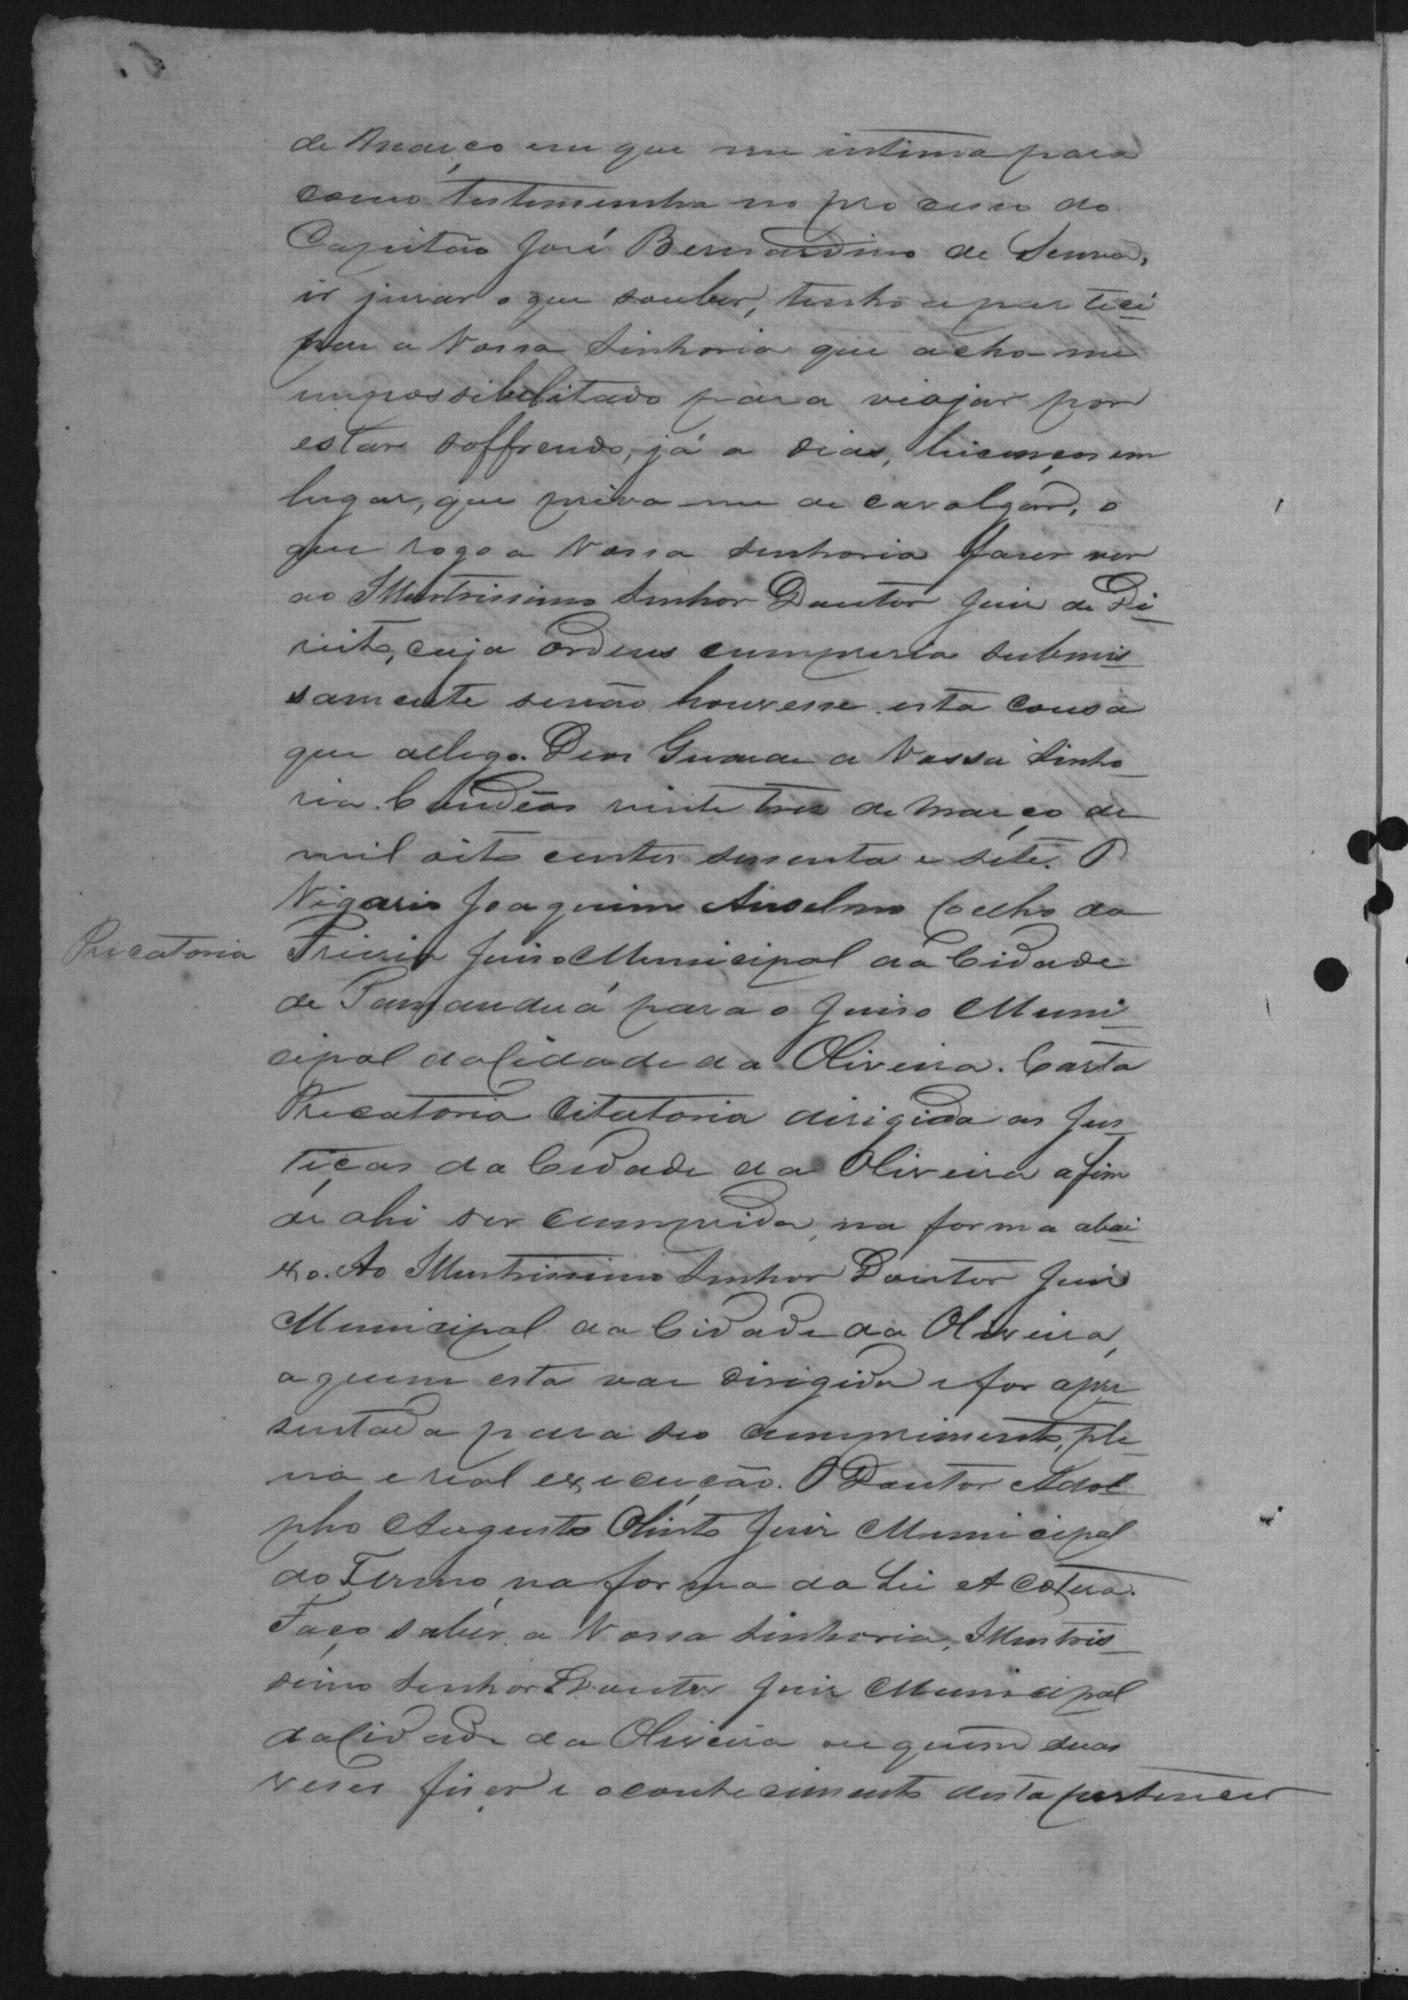 de Março em que me intima para
como testemunha no processo do
Capitão José Bernardino de Senna,
ir jurar o que souber, tenho a partici
par a Vossa Senhoria que acho-me
impossibilitado para viajar por
estar soffrendo, já a dias, leicenços em
lugar, que priva-me de cavalgar, o
que rogo a Vossa Senhoria fazer ver
ao Illustrissimo Senhor Doutor Juiz de Di-
reito, cuja ordens cumpriria submis
samente senão houvesse esta causa
que allego. Deos Guarde a Vossa Senho-
ria. Candêas vinte tres de março de
mil oito centos sessenta e sete. O
Vigario Joaquim Anselmo Coelho da
Precatoria
Juizo Municipal da Cidade
de Tamanduá para o Juizo Muni-
cipal da Cidade da Oliveira. Carta
Precatoria Citatoria dirigida as Jus
tiças da Cidade da Oliveira afim
de ahi ser cumprida, na forma abai
xo. Ao Illustrissimo Senhor Doutor Juiz
Municipal da Cidade da Oliveira,
a quem esta vae dirigida e for apre
sentada para seo cumprimento, ple-
na e real execução. O Doutor Adol
pho Augusto Olinto Juiz Municipal
do Termo, na forma da Lei et Cœtera.
Faço saber a Vossa Senhoria, Illustris-
simo Senhor Doutor Juiz Municipal
da Cidade da Oliveira ou quem suas
vezes fizer e o conhecimento desta pertencer